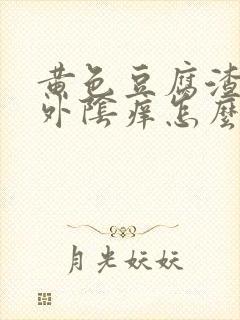 黄色豆腐渣
外陰痒怎麼
月光妖妖